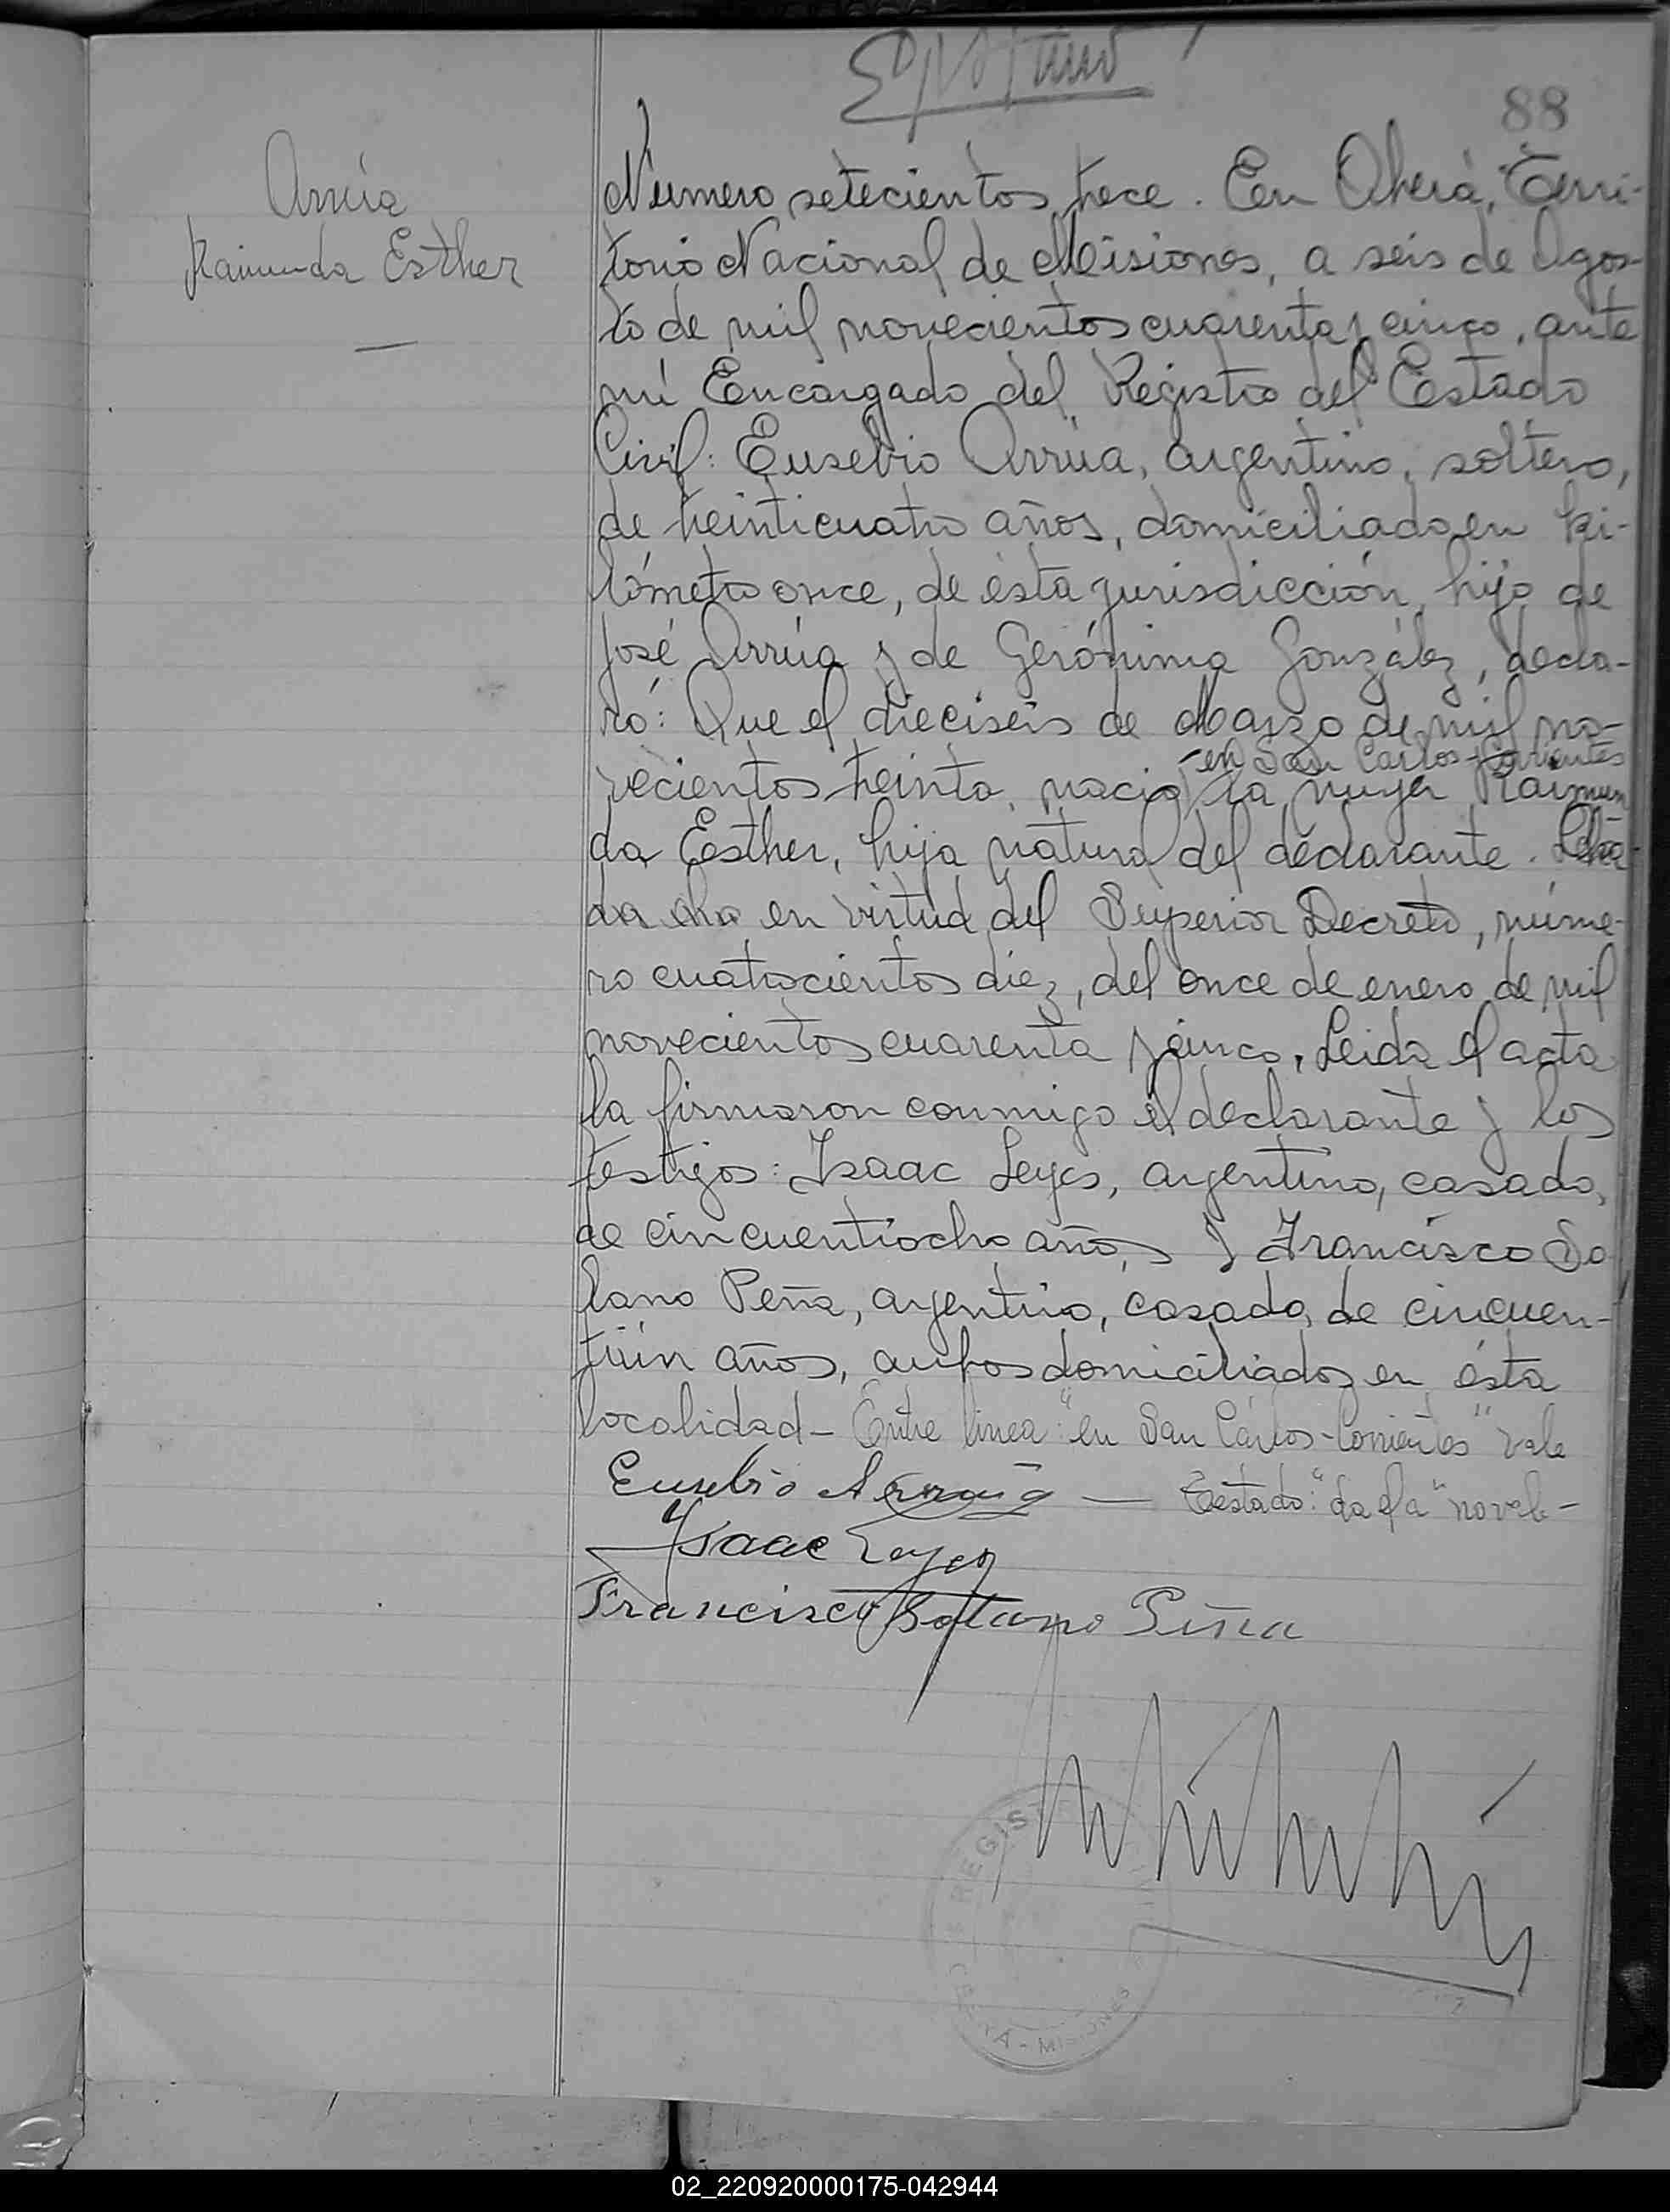 88
Arrúa
Raimunda Esther
Número setecientos trece. En Oberá, Terri-
torio Nacional de Misiones, a seis de Agos-
to de mil novecientos cuarenta y cinco, ante
mí Encargado del Registro del Estado
Civil: Eusebio Arrúa, argentino, soltero,
de treinticuatro años, domiciliado en ki-
lómetro once, de ésta jurisdicción, hijo de
José Arrúa y de Gerónima González, decla-
ró: Que el dieciséis de Marzo de mil no-
en San Carlos-Corrientes
vecientos treinta, nació la mujer Raimun
da Esther, hija natural del declarante.
en virtud del Superior Decreto, núme-
ro cuatrocientos diez, del once de enero de mil
novecientos cuarenta y cinco. Leida el acta
la firmaron conmigo el declarante y los
testigos: Isaac Leyes, argentino, casado,
de cincuentiocho años, y Francisco So
lano Peña, argentino, casado, de cincuen-
tiún años, ambos domiciliados en ésta
localidad- Entre línea: "en San Cárlos-Corrientes" vale
Eusebio Arrúa — Testado: novale-
Isaac Leyes
Francisco Solano Piña
REGIST
OBERÁ - MISIONES
02_220920000175-042944